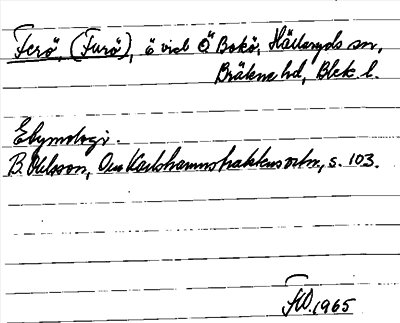 Ferö, (Furö), ö vid Ö Bokö, Hällaryds sn,
Bräkne hd, Blek l.
Etymologi.
B. Ohlsson, Om Karlshamnstraktens ortn, s. 103.
1965